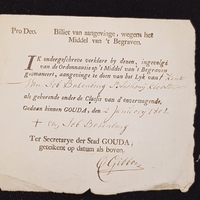 Pro Deo.
Billiet van aangevinge, wegens het
Middel van 't Begraven.
IK ondergeschreven verklere by deezen, ingevolge
van de Ordonnantie op 't Middel van 't Begraven
geëmaneert, aangevinge te doen van het Lyk van
van Job
als gehorende onder de Classis van d'onvermogende.
Gedaan binnen GOUDA, den 2 January 1801
van Job
Ter Secretarye der Stad GOUDA,
getekent op datum als boven.